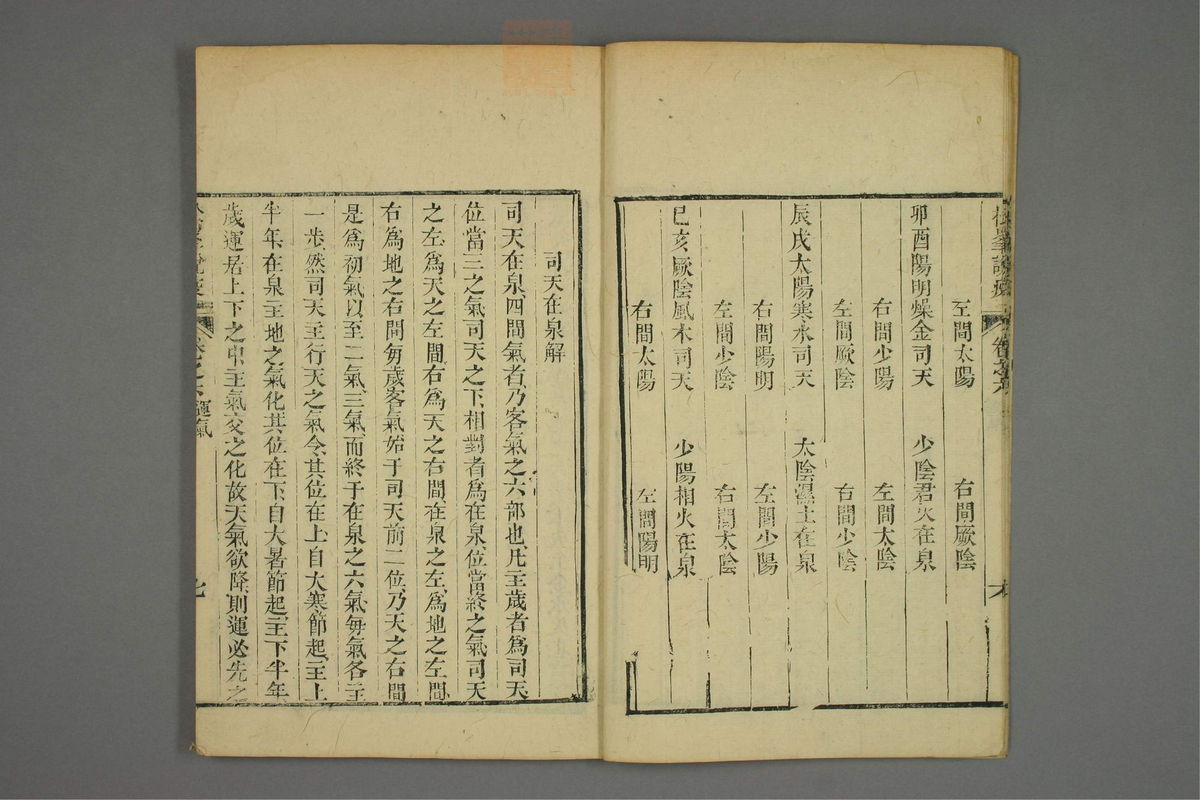 左間太陽　右間厥陰
卯酉陽明燥金司天　少陰君火在泉
右間少陽　左間太陰
左間厥陰　右間少陰
辰戌太陽寒水司天　太陰濕土在泉
右間陽明　左間少陽
左間少陰　右間太陰
巳亥厥陰風木司天　少陽相火在泉
右間太陽　左間陽明
司天在泉解
司天在泉四間氣者乃客氣之六部也凡主歲者為司天
位當三之氣司天之下相對者為在泉位當終之氣司天
之左為天之左間右為天之右間在泉之左為地之左間
右為地之右間每歲客氣始于司天前二位乃天之右間
是為初氣以至二氣三氣而終于在泉之六氣每氣各主
一步然司天主行天之氣令其位在上自大寒節起主上
半年在泉主地之氣化其位在下自大暑節起主下半年
歲運居上下之中主氣交之化故天氣欲降則運必先之
運氣